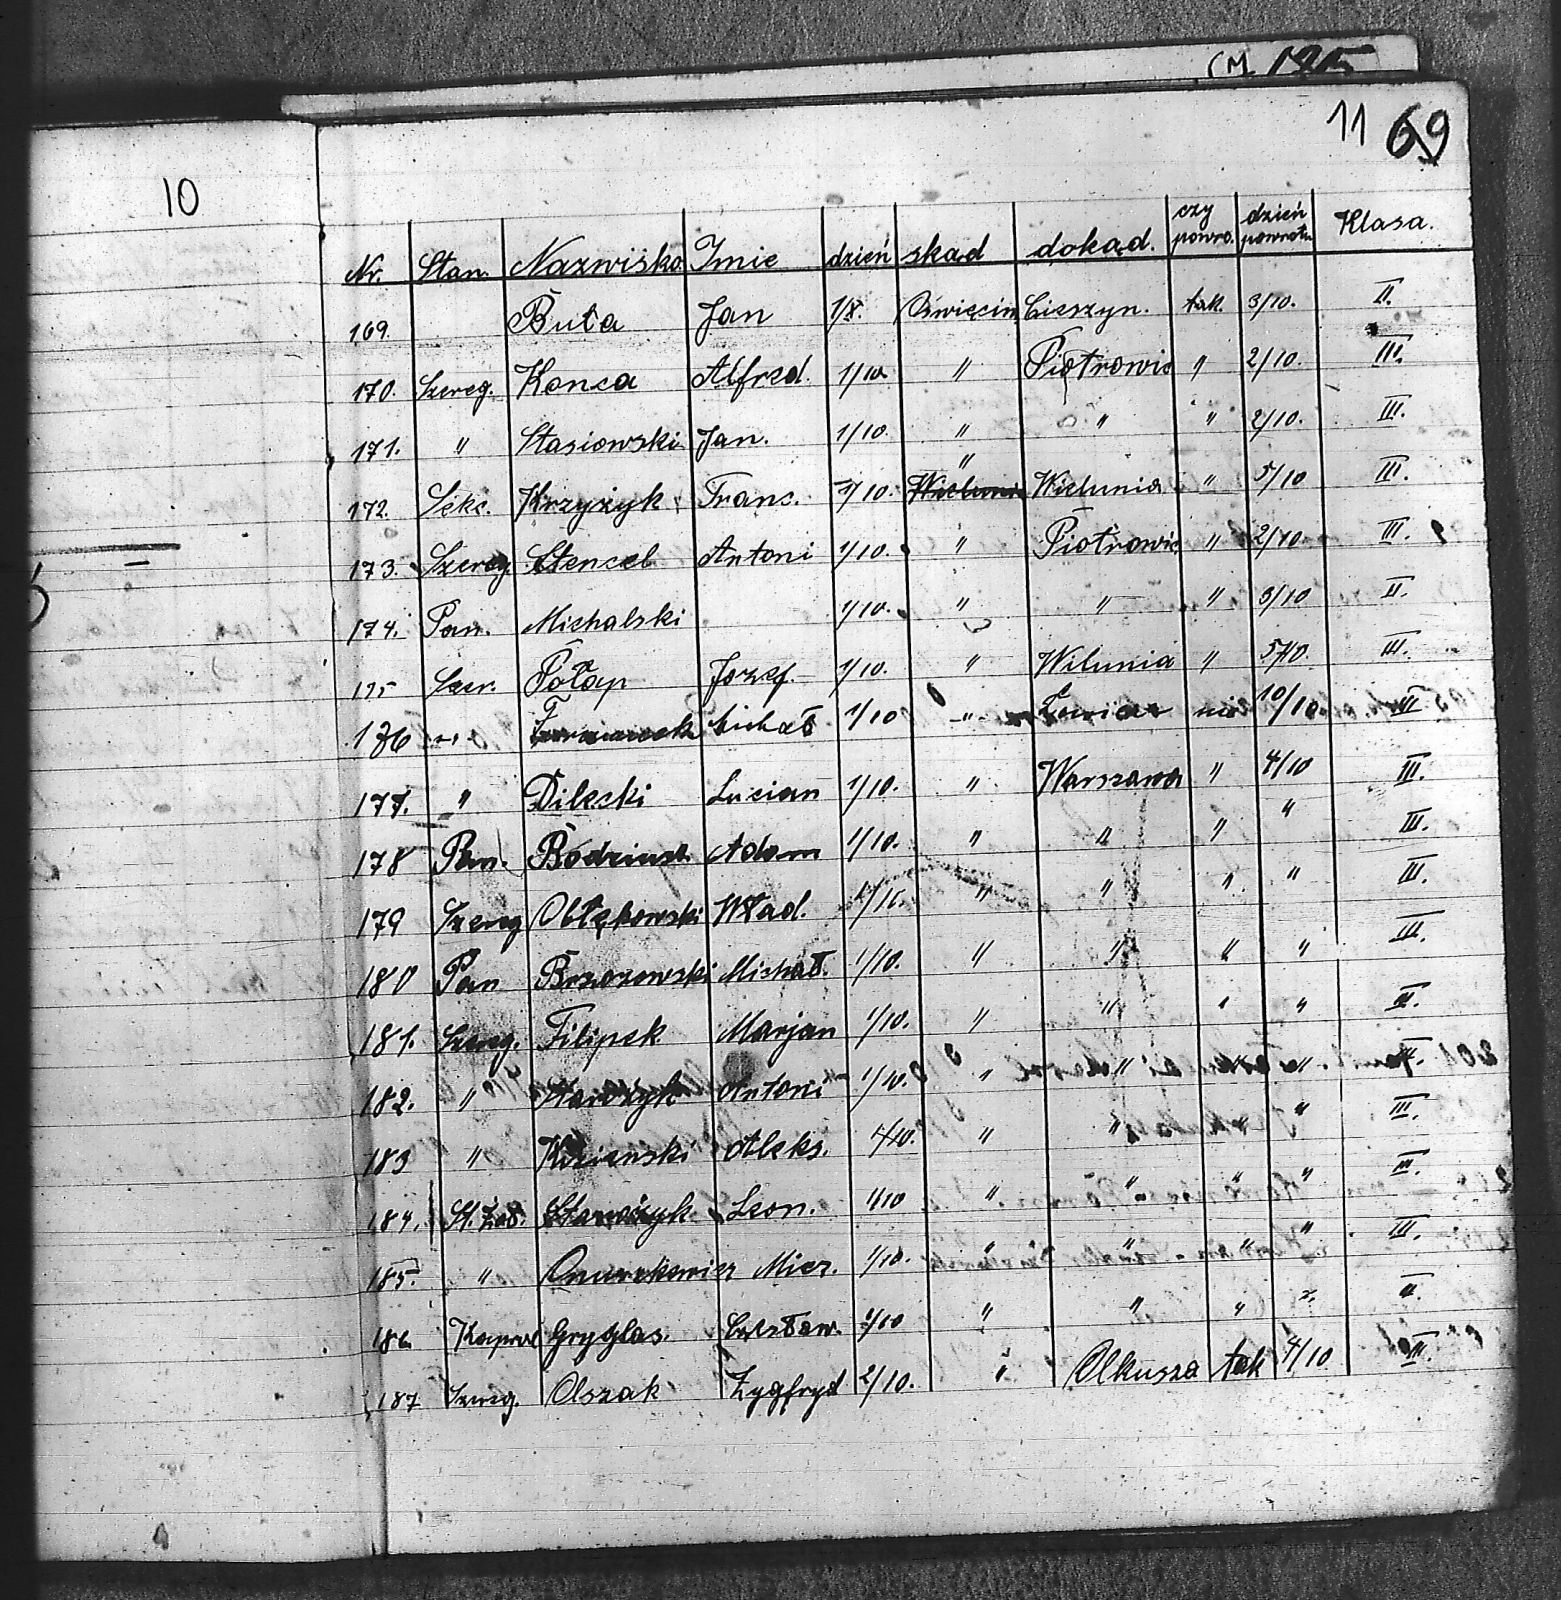 11 69
10
Nr. Stan. Nazwisko Imie dzień skąd dokąd. czy powro. dzień powrotu Klasa.
169. Buta Jan 1/8. Oświęcim Cieszyn. tak. 3/10. II.
170. Szereg. Konca Alfred. 1/10. " Piotrowic " 2/10. III.
171. " Stasiowski Jan. 1/10. " " " 2/10. III.
172. Sekc. Krzyżyk Franc. 1/10. " Wielunia " 5/10 III.
173. Szereg Stencel Antoni 1/10. " Piotrowic " 2/10. III.
174. Pan. Michalski 1/10. " " " 3/10 II.
175 Szer. Połap Jozef. 1/10. " Wilunia " 5/10. III.
176 " Michał 1/10 " Łowicz nie 10/10. III
177. " Dilecki Lucian 1/10. " Warszawa " 4/10 III.
178 Pan. Adam 1/10. " " " " III.
179 Szereg Obłękowski Wład. " " " " III.
180 Pan Brzozowski Michał. 1/10. " " " " III.
181. Szereg. Filipek Marjan 1/10. " " " " II.
182. " Antoni 1/10. " " " "
183 " Aleks. 1/10. " " " " III.
184. St. Żoł. Stawczyk Leon. 1/10 " " " " III.
185. " Miecz. 1/10. " " " " III.
186. Kapral Gryglas. Czesław. 1/10 " " " " II.
187 Szereg. Olszak Zygfryd 2/10. " Olkusza tak 4/10 III.